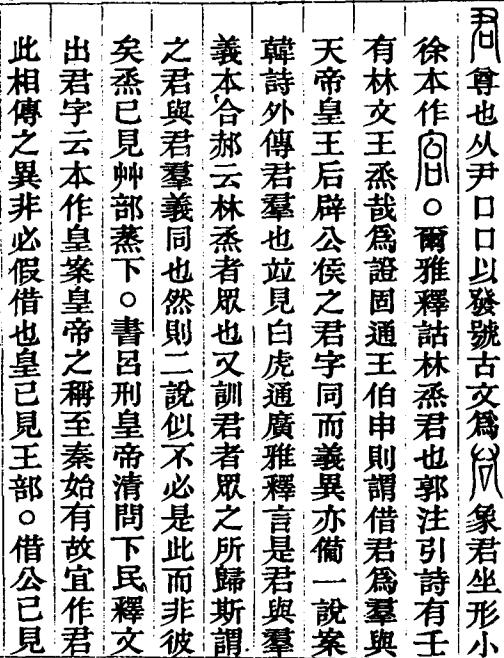 君尊也从尹口口以發號古文爲象君坐形小
徐本作○爾雅釋詁林烝君也郭注引詩有壬
有林文王烝哉爲證固通王伯申則謂借君爲羣與
天帝皇王后辟公侯之君字同而義異亦備一說案
韓詩外傳君羣也竝見白虎通廣雅釋言是君與羣
義本合郝云林烝者眾也又訓君者眾之所歸斯謂
之君與君羣義同也然則二說似不必是此而非彼
矣烝已見艸部蒸下○書呂刑皇帝清問下民釋文
出君字云本作皇案皇帝之稱至秦始有故宜作君
此相傳之異非必假借也皇已見王部○借公已見